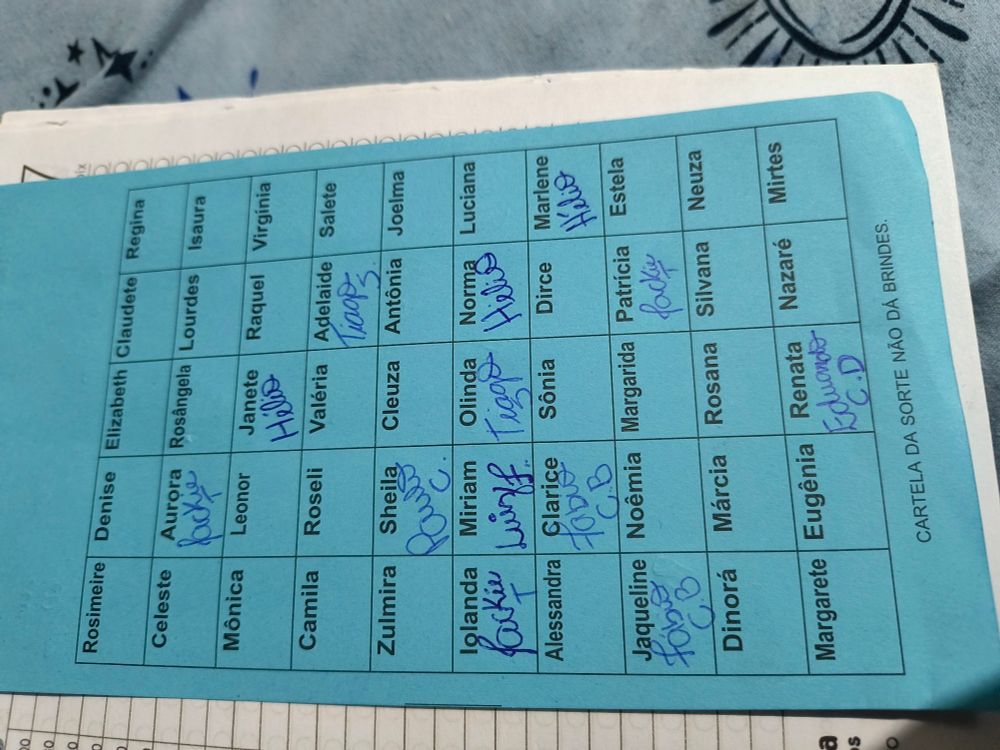 Rosimeire Denise Elizabeth Claudete Regina
Celeste Aurora Rosângela Lourdes Isaura
Jackie
Mônica Leonor Janete Raquel Virgínia
Helio
Camila Roseli Valéria Adelaide Salete
Tiago
S.
Zulmira Sheila Cleuza Antônia Joelma
C.
Iolanda Miriam Olinda Norma Luciana
Jackie Luiz F. Tiago Hélio
T S
Alessandra Clarice Sônia Dirce Marlene
Fábio Hélio
C.B
Jaqueline Noêmia Margarida Patrícia Estela
Fábio Jackie
C.B
Dinorá Márcia Rosana Silvana Neuza
Margarete Eugênia Renata Nazaré Mirtes
Eduardo
C.D
CARTELA DA SORTE NÃO DÁ BRINDES.